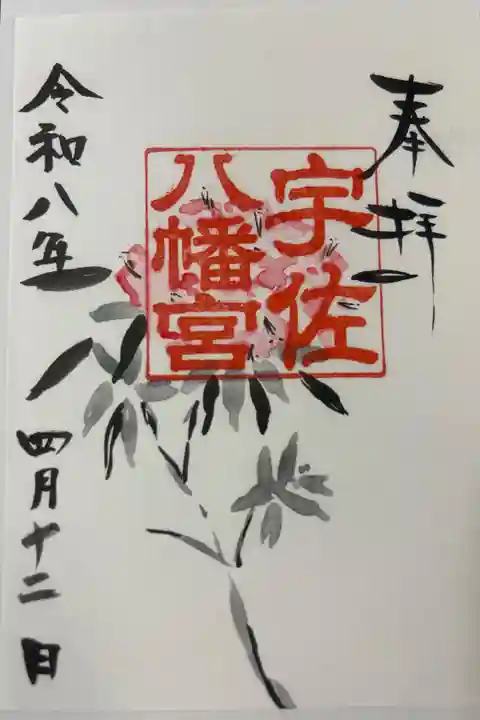 奉拝
宇佐
八幡宮
令和八年
四月十二日